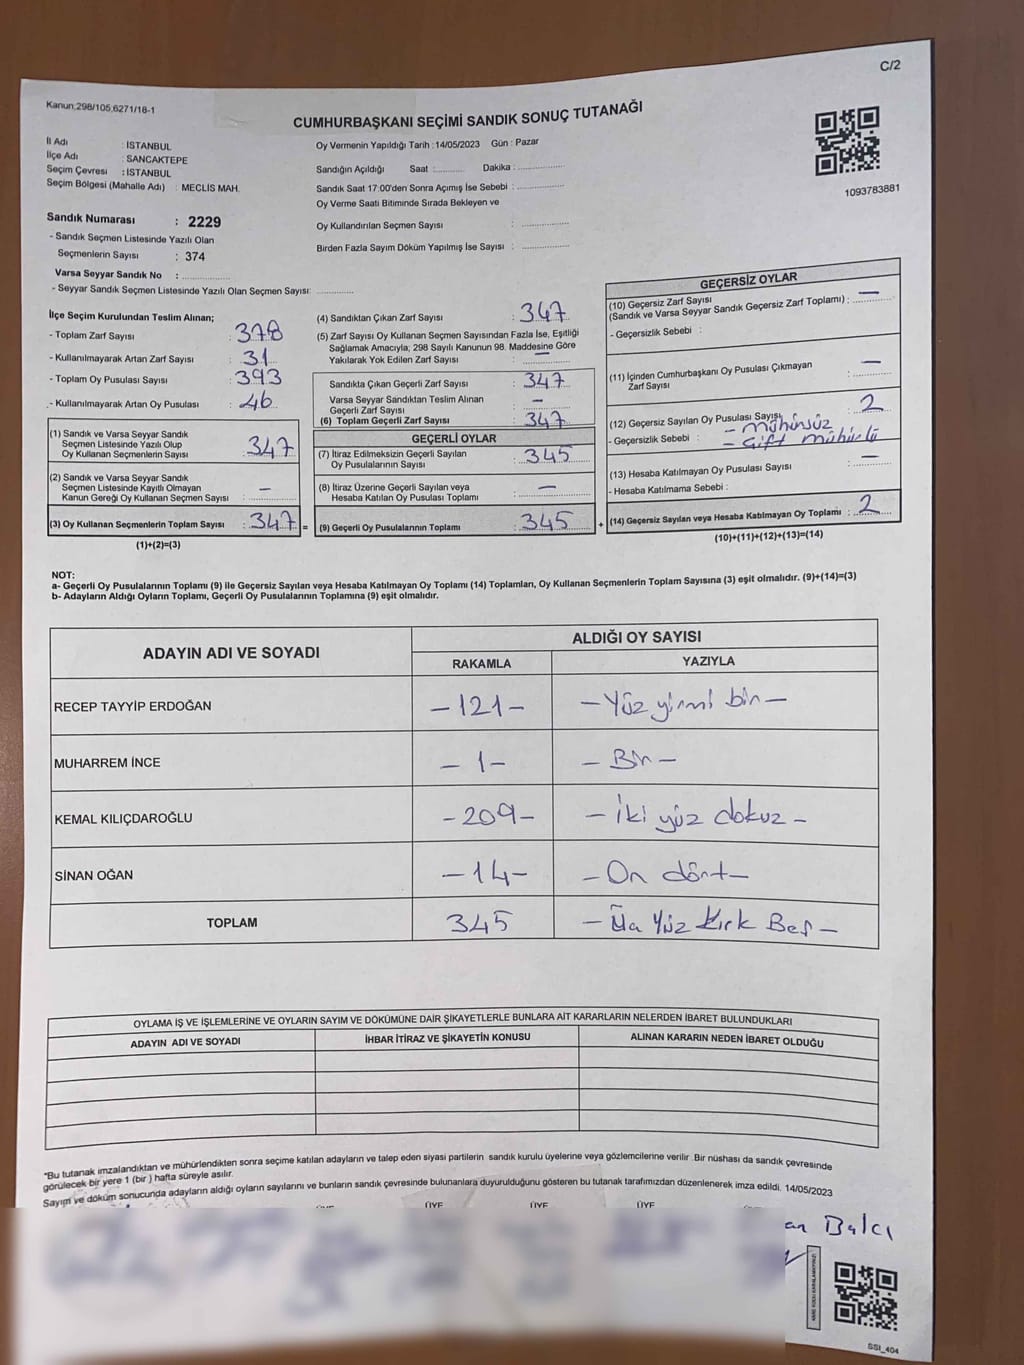 C/2
Kanun:298/105,6271/18-1
CUMHURBAŞKANI SEÇİMİ SANDIK SONUÇ TUTANAĞI
İl Adı : İSTANBUL
İlçe Adı : SANCAKTEPE
Seçim Çevresi : İSTANBUL
Seçim Bölgesi (Mahalle Adı) : MECLİS MAH.
Sandık Numarası : 2229
- Sandık Seçmen Listesinde Yazılı Olan
Seçmenlerin Sayısı : 374
Varsa Seyyar Sandık No : ..............
- Seyyar Sandık Seçmen Listesinde Yazılı Olan Seçmen Sayısı: ............
Oy Vermenin Yapıldığı Tarih : 14/05/2023 Gün : Pazar
Sandığın Açıldığı Saat :........... Dakika :..............
Sandık Saat 17:00'den Sonra Açımış İse Sebebi :..............
Oy Verme Saati Bitiminde Sırada Bekleyen ve
Oy Kullandırılan Seçmen Sayısı : ..............
Birden Fazla Sayım Döküm Yapılmış İse Sayısı : ..............
1093783881
İlçe Seçim Kurulundan Teslim Alınan;
- Toplam Zarf Sayısı : 378
- Kullanılmayarak Artan Zarf Sayısı : 31
- Toplam Oy Pusulası Sayısı : 393
- Kullanılmayarak Artan Oy Pusulası : 46
(1) Sandık ve Varsa Seyyar Sandık
Seçmen Listesinde Yazılı Olup
Oy Kullanan Seçmenlerin Sayısı : 347
(2) Sandık ve Varsa Seyyar Sandık
Seçmen Listesinde Kayıtlı Olmayan
Kanun Gereği Oy Kullanan Seçmen Sayısı : –
(3) Oy Kullanan Seçmenlerin Toplam Sayısı : 347 =
(1)+(2)=(3)
(4) Sandıktan Çıkan Zarf Sayısı : 347
(5) Zarf Sayısı Oy Kullanan Seçmen Sayısından Fazla İse, Eşitliği
Sağlamak Amacıyla; 298 Sayılı Kanunun 98. Maddesine Göre
Yakılarak Yok Edilen Zarf Sayısı : –
Sandıkta Çıkan Geçerli Zarf Sayısı : 347
Varsa Seyyar Sandıktan Teslim Alınan
Geçerli Zarf Sayısı : –
(6) Toplam Geçerli Zarf Sayısı : 347
GEÇERLİ OYLAR
(7) İtiraz Edilmeksizin Geçerli Sayılan
Oy Pusulalarının Sayısı : 345
(8) İtiraz Üzerine Geçerli Sayılan veya
Hesaba Katılan Oy Pusulası Toplamı : –
(9) Geçerli Oy Pusulalarının Toplamı : 345 +
GEÇERSİZ OYLAR
(10) Geçersiz Zarf Sayısı
(Sandık ve Varsa Seyyar Sandık Geçersiz Zarf Toplamı) : –
- Geçersizlik Sebebi :
(11) İçinden Cumhurbaşkanı Oy Pusulası Çıkmayan
Zarf Sayısı : –
(12) Geçersiz Sayılan Oy Pusulası Sayısı : 2
- Geçersizlik Sebebi : – mühürsüz
– Çift mühürlü
(13) Hesaba Katılmayan Oy Pusulası Sayısı : –
- Hesaba Katılmama Sebebi :
(14) Geçersiz Sayılan veya Hesaba Katılmayan Oy Toplamı : 2
(10)+(11)+(12)+(13)=(14)
NOT:
a- Geçerli Oy Pusulalarının Toplamı (9) ile Geçersiz Sayılan veya Hesaba Katılmayan Oy Toplamı (14) Toplamları, Oy Kullanan Seçmenlerin Toplam Sayısına (3) eşit olmalıdır. (9)+(14)=(3)
b- Adayların Aldığı Oyların Toplamı, Geçerli Oy Pusulalarının Toplamına (9) eşit olmalıdır.
ADAYIN ADI VE SOYADI
ALDIĞI OY SAYISI
RAKAMLA YAZIYLA
RECEP TAYYİP ERDOĞAN –121– –Yüz yirmi bir–
MUHARREM İNCE –1– –Bir–
KEMAL KILIÇDAROĞLU –209– –İki yüz dokuz–
SİNAN OĞAN –14– –On dört–
TOPLAM 345 – Yüz Kırk Beş–
OYLAMA İŞ VE İŞLEMLERİNE VE OYLARIN SAYIM VE DÖKÜMÜNE DAİR ŞİKAYETLERLE BUNLARA AİT KARARLARIN NELERDEN İBARET BULUNDUKLARI
ADAYIN ADI VE SOYADI İHBAR İTİRAZ VE ŞİKAYETİN KONUSU ALINAN KARARIN NEDEN İBARET OLDUĞU
*Bu tutanak imzalandıktan ve mühürlendikten sonra seçime katılan adayların ve talep eden siyasi partilerin sandık kurulu üyelerine veya gözlemcilerine verilir. Bir nüshası da sandık çevresinde
görülecek bir yere 1 (bir ) hafta süreyle asılır.
Sayım ve döküm sonucunda adayların aldığı oyların sayılarını ve bunların sandık çevresinde bulunanlara duyurulduğunu gösteren bu tutanak tarafımızdan düzenlenerek imza edildi. 14/05/2023
ÜYE ÜYE ÜYE
an Balcı
SSI_404